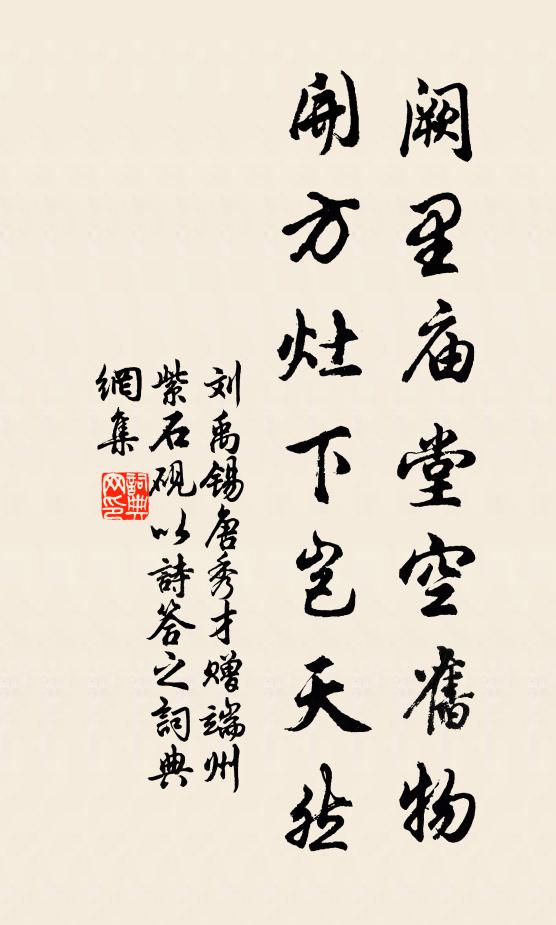 阙里庙堂空舊物
開方灶下岂天然
刘禹锡唐秀才赠端州
紫石砚以詩答之詞典
網集
詞典
网印